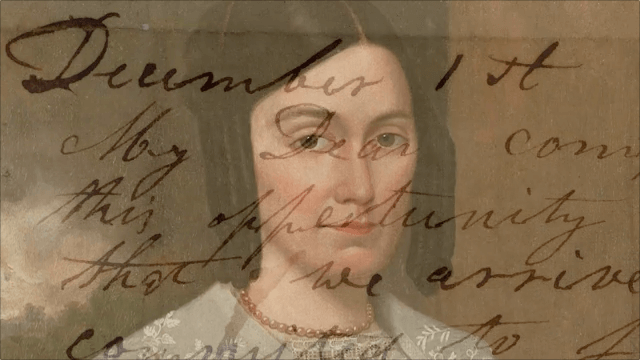 December 1st
My Dear
this opportunity
that we arrive
to